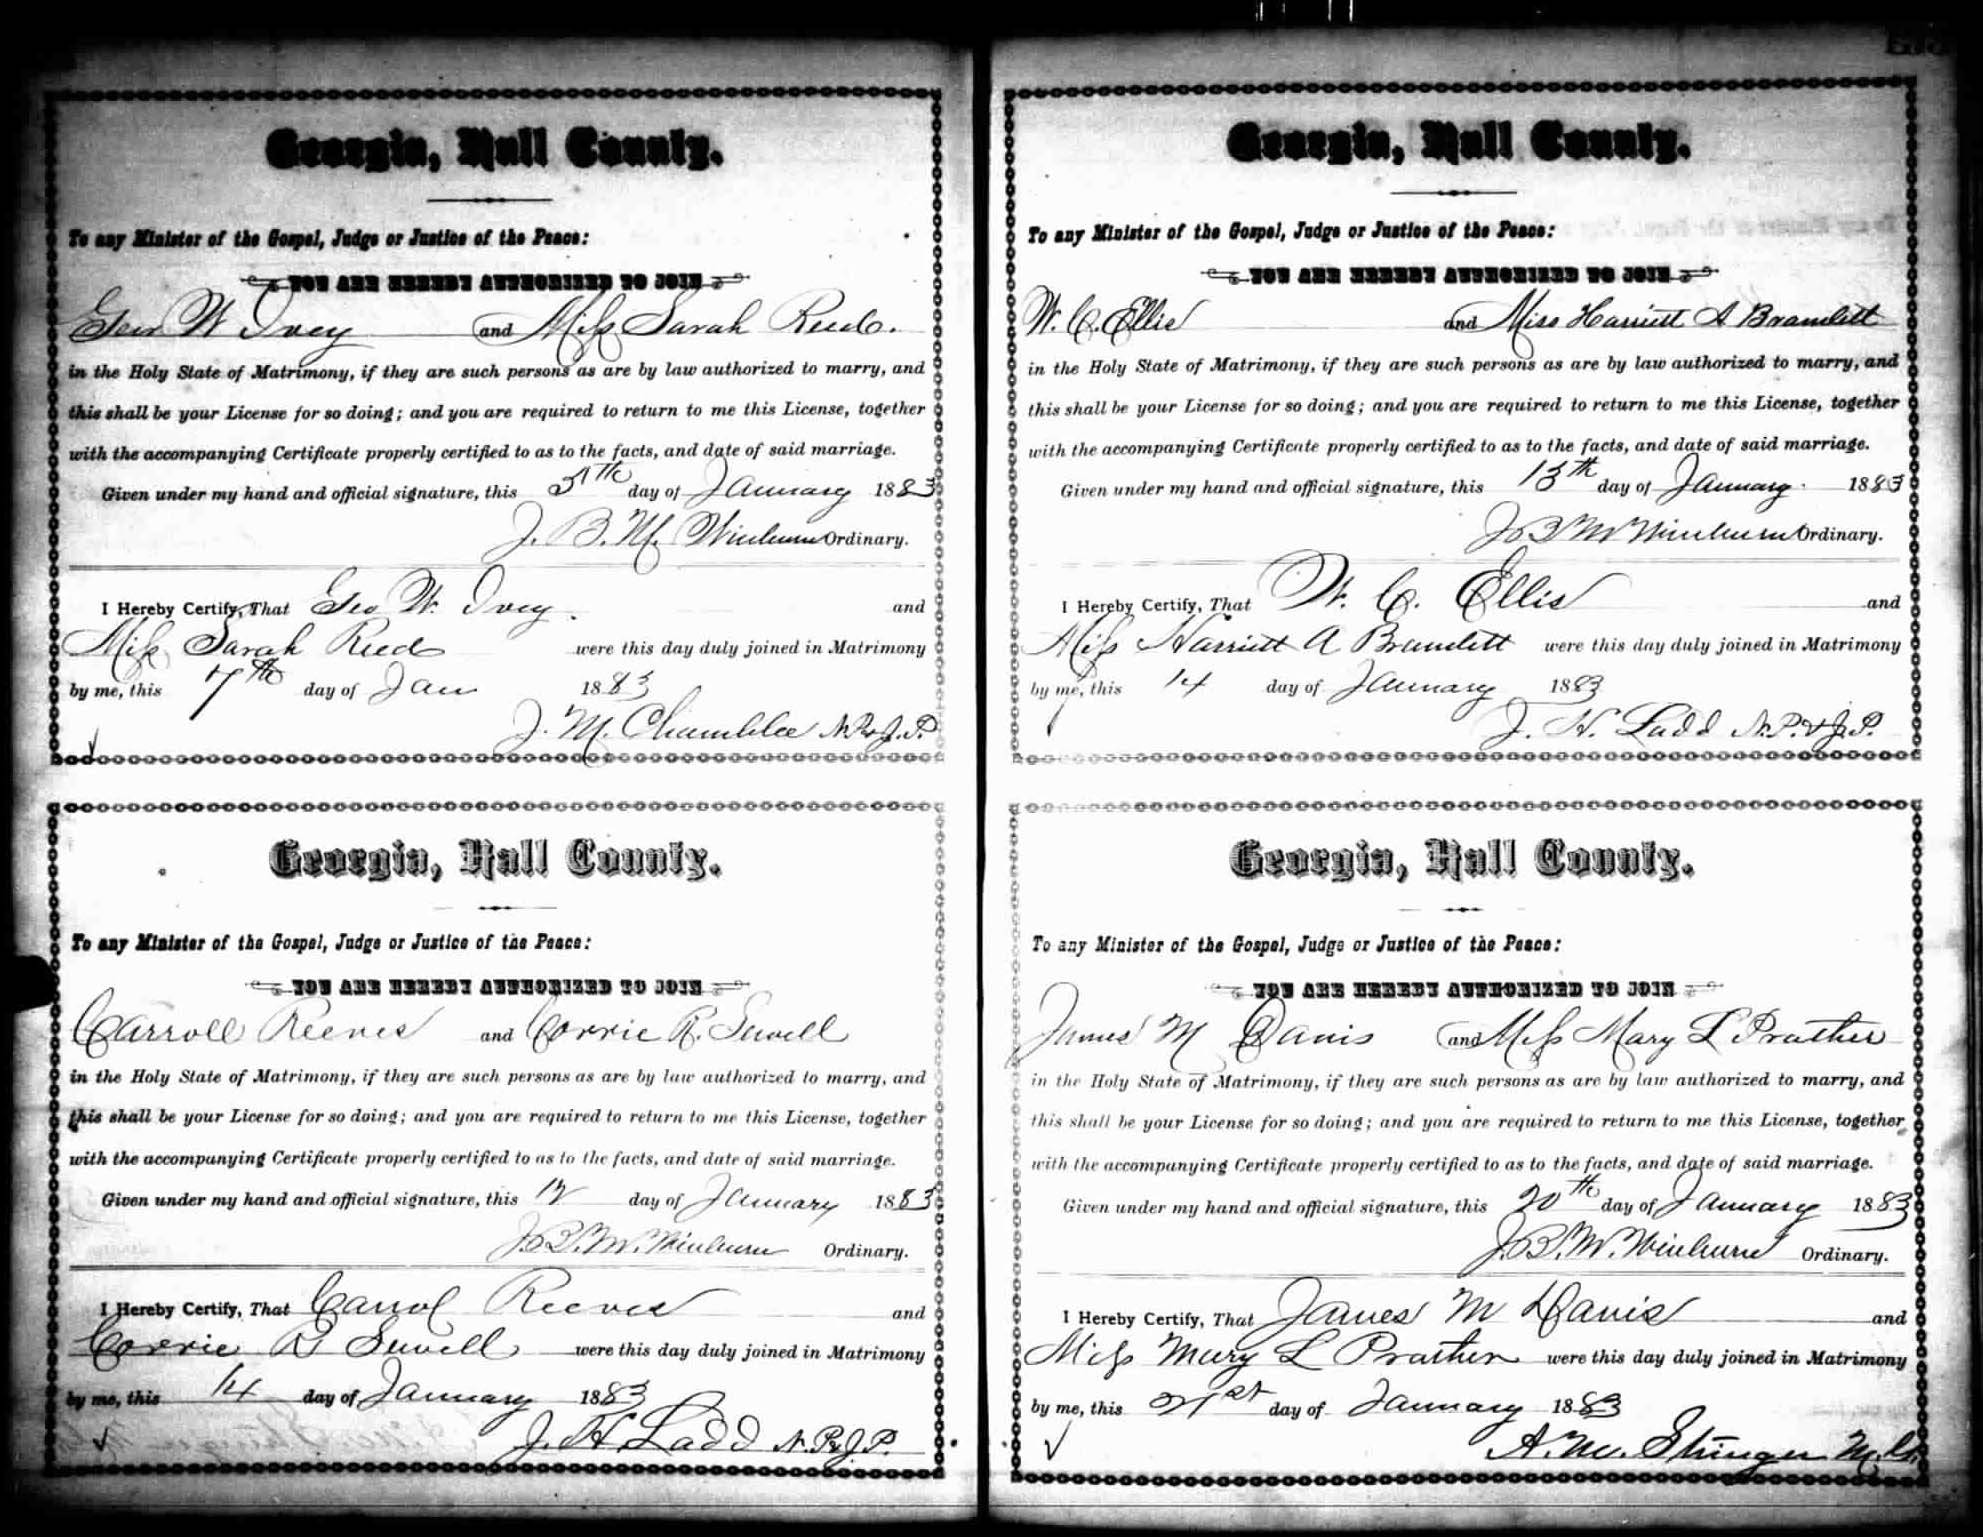 Georgia, Hall County.
To any Minister of the Gospel, Judge or Justice of the Peace:
YOU ARE HEREBY AUTHORIZED TO JOIN
Geo W Ivey and Miss Sarah Reed.
in the Holy State of Matrimony, if they are such persons as are by law authorized to marry, and
this shall be your License for so doing; and you are required to return to me this License, together
with the accompanying Certificate properly certified to as to the facts, and date of said marriage.
Given under my hand and official signature, this 5th day of January 1883
J. B. M. Winburn Ordinary.
I Hereby Certify, That Geo W. Ivey. and
Miss Sarah Reed were this day duly joined in Matrimony
by me, this 7th day of Jan 1883
J. M. Chamblee N.P. & J.P.
Georgia, Hall County.
To any Minister of the Gospel, Judge or Justice of the Peace:
YOU ARE HEREBY AUTHORIZED TO JOIN
Carroll Reeves and Corrie R. Sewell
in the Holy State of Matrimony, if they are such persons as are by law authorized to marry, and
this shall be your License for so doing; and you are required to return to me this License, together
with the accompanying Certificate properly certified to as to the facts, and date of said marriage.
Given under my hand and official signature, this 12 day of January 1883
J. B. M. Winburn Ordinary.
I Hereby Certify, That Carrol Reeves and
Corrie R Sewell were this day duly joined in Matrimony
by me, this 14 day of January 1883
J. H Ladd N.P. & J.P.
Georgia, Hall County.
To any Minister of the Gospel, Judge or Justice of the Peace:
YOU ARE HEREBY AUTHORIZED TO JOIN
W. C. Ellis and Miss Harriett A Bramlett
in the Holy State of Matrimony, if they are such persons as are by law authorized to marry, and
this shall be your License for so doing; and you are required to return to me this License, together
with the accompanying Certificate properly certified to as to the facts, and date of said marriage.
Given under my hand and official signature, this 13th day of January. 1883
J B M Winburn Ordinary.
I Hereby Certify, That W. C. Ellis and
Miss Harriett A Bramlett were this day duly joined in Matrimony
by me, this 14 day of January 1883
J. H. Ladd N.P. & J.P.
Georgia, Hall County.
To any Minister of the Gospel, Judge or Justice of the Peace:
YOU ARE HEREBY AUTHORIZED TO JOIN
James M Davis and Miss Mary L Prather
in the Holy State of Matrimony, if they are such persons as are by law authorized to marry, and
this shall be your License for so doing; and you are required to return to me this License, together
with the accompanying Certificate properly certified to as to the facts, and date of said marriage.
Given under my hand and official signature, this 20th day of January 1883
J. B. M. Winburn Ordinary.
I Hereby Certify, That James M Davis and
Miss Mary L Prather were this day duly joined in Matrimony
by me, this 21st day of January 1883
A. M. Stringer M.G.